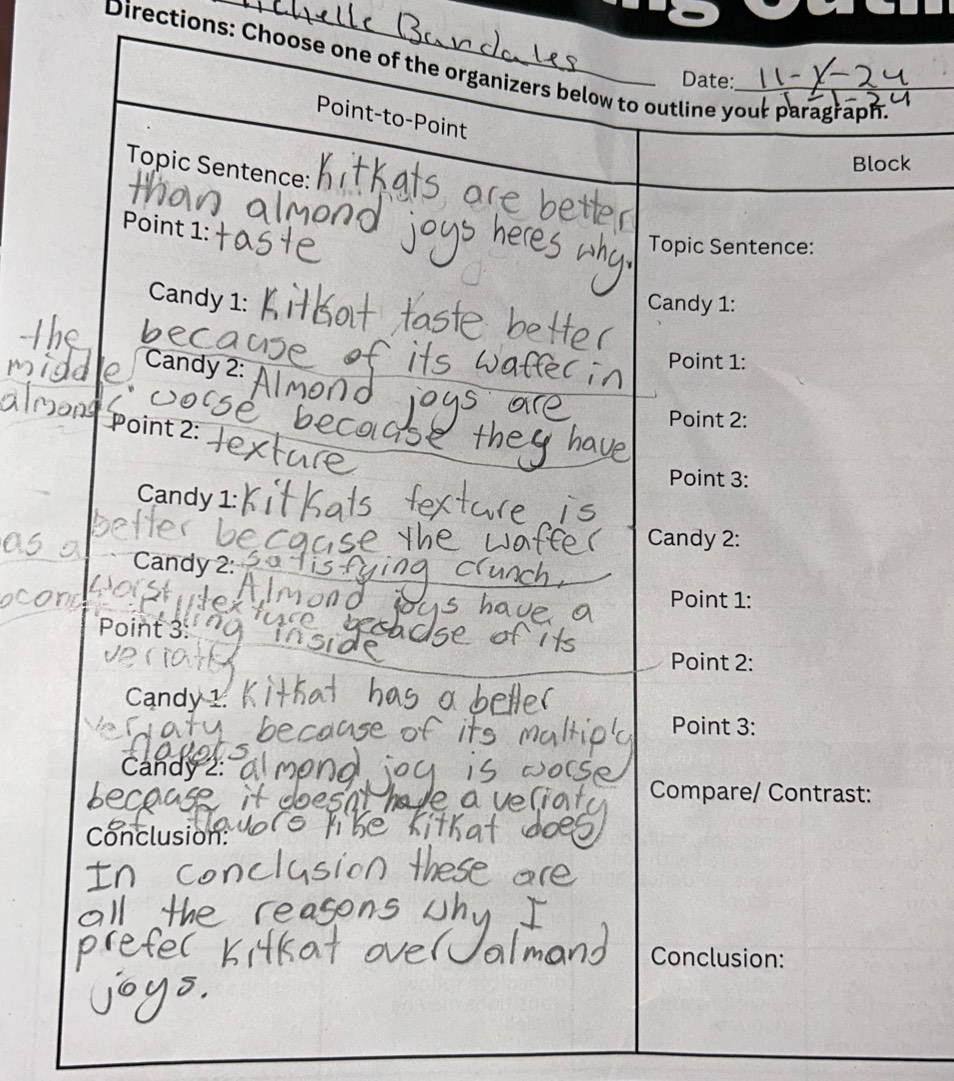 Directions: Choose one of the organizers below to outline your paragraph.
Date: 11-1-24
Point-to-Point
Topic Sentence: Kitkats are better
than almond joys heres why.
Point 1: taste
Candy 1: Kitkat taste better
because of its waffer in
the middle.
Candy 2: Almond joys are
worse because they have
almonds
Point 2: texture
Candy 1: Kitkats texture is
better because the waffer
as a satisfying crunch.
Candy 2: Almond joys have a
worst texture because of its
filling inside
Point 3:
veriaty
Candy 1: Kitkat has a better
veriaty because of its multiply
flavors
Candy 2: almond joy is worse
because it doesnt have a veriaty
of flavors like kitkat does
Conclusion:
In conclusion these are
all the reasons why I
prefer kitkat over almand
joys.
Block
Topic Sentence:
Candy 1:
Point 1:
Point 2:
Point 3:
Candy 2:
Point 1:
Point 2:
Point 3:
Compare/ Contrast:
Conclusion: